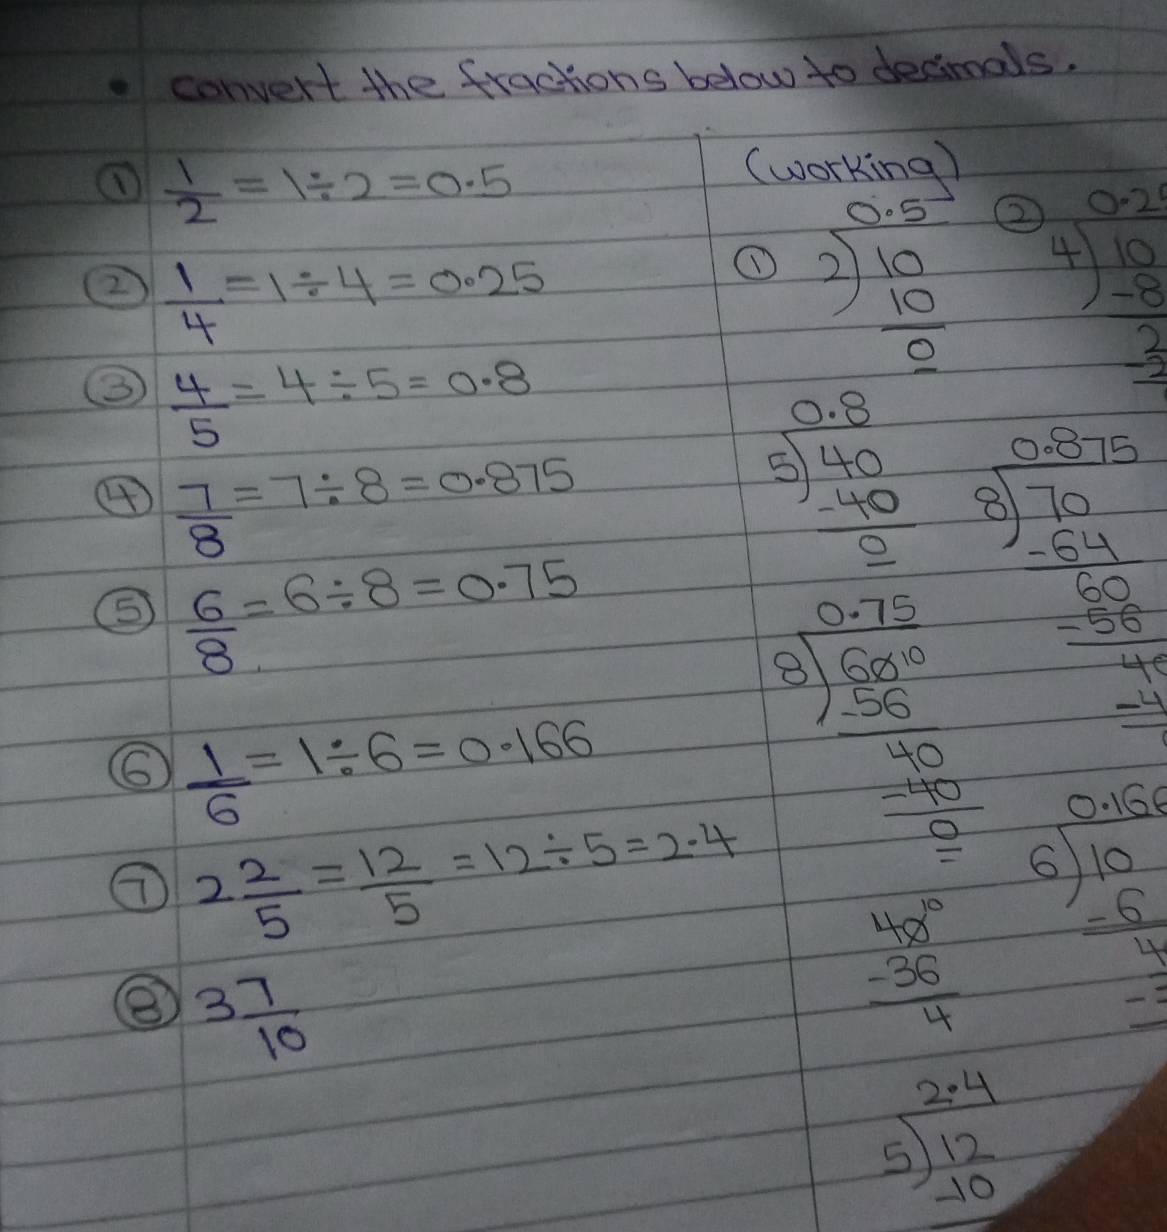 • convert the fractions below to decimals.
① 1/2 = 1÷2 = 0.5
② 1/4 = 1÷4 = 0.25
③ 4/5 = 4÷5 = 0.8
④ 7/8 = 7÷8 = 0.875
⑤ 6/8 = 6÷8 = 0.75
⑥ 1/6 = 1÷6 = 0.166
⑦ 2 2/5 = 12/5 = 12÷5 = 2.4
⑧ 3 7/10
(working)
0.5
① 2)10
10
0
② 0.25
4)10
-8
2
0.8
5)40
-40
0
0.875
8)70
-64
60
-56
40
-4
0.75
8)60 10
-56
40
-40
0
0.166
6)10
-6
4
40 10
-36
4
2.4
5)12
-10